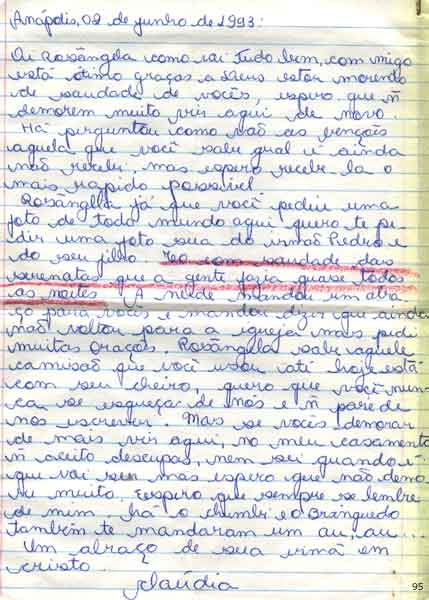 Anápolis, 02 de junho de 1993:
Oi Rosângela como vai Tudo bem, com migo
está ótimo graças a Deus estou morendo
de saudade de vocês, espero que ñ
demorem muito vris aqui de novo.
Há perguntou como vão as bençãos
aquela que você sabe qual é ainda
não recebi, mas espero recebe-la o
mais rapido possivel
Rosângela já que você pediu uma
foto de todo mundo aqui quero te pe-
dir uma foto sua do irmão Pedro e
do seu filho. com saudade das
serenatas que a gente fazia quase todas
as noites. A neide mandou um abra-
ço para vocês e mandou dizer que ainda
não voltou para a igreja mais pedi
muitas orações. Rosângela sabe aquele
camisão que você usou até hoje está
com seu cheiro, quero que você nun-
ca se esqueça de nós e ñ pare de
nos escrever. Mas se vocês demorar
de mais vris aqui, no meu casamento
ñ aceito descupas, nem sei quando é
que vai ser mas espero que não demo
re muito, Espero que sempre se lembre
de mim há o chumbi e o Brinquedo
Também te mandaram um au, au...
Um abraço de sua irmã em
cristo.
Claúdia
95